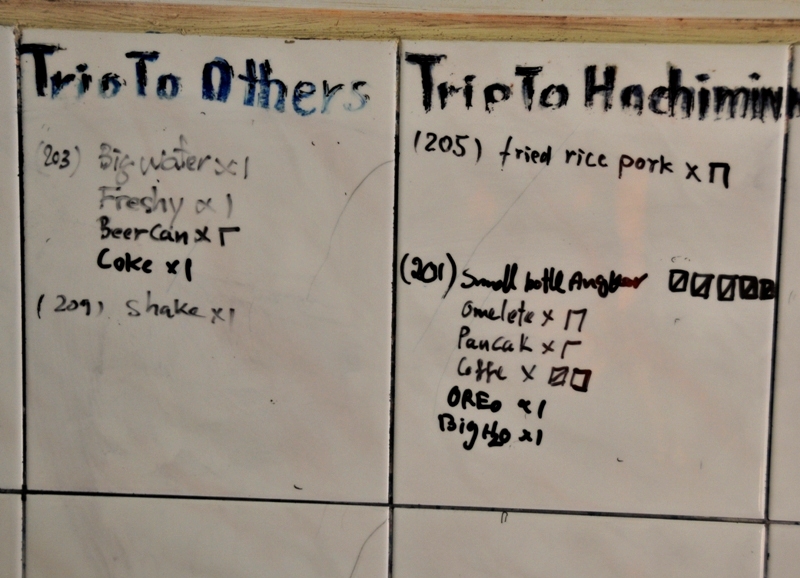 Trip To Others
(203) Big water x 1
Freshy x 1
Beer Can x
Coke x 1
(209) Shake x 1
Trip To Hochiminh
(205) fried rice pork x
(201) Small bottle Angkor
Omelete x
Pancak x
Coffe x
OREO x 1
Big H2O x 1